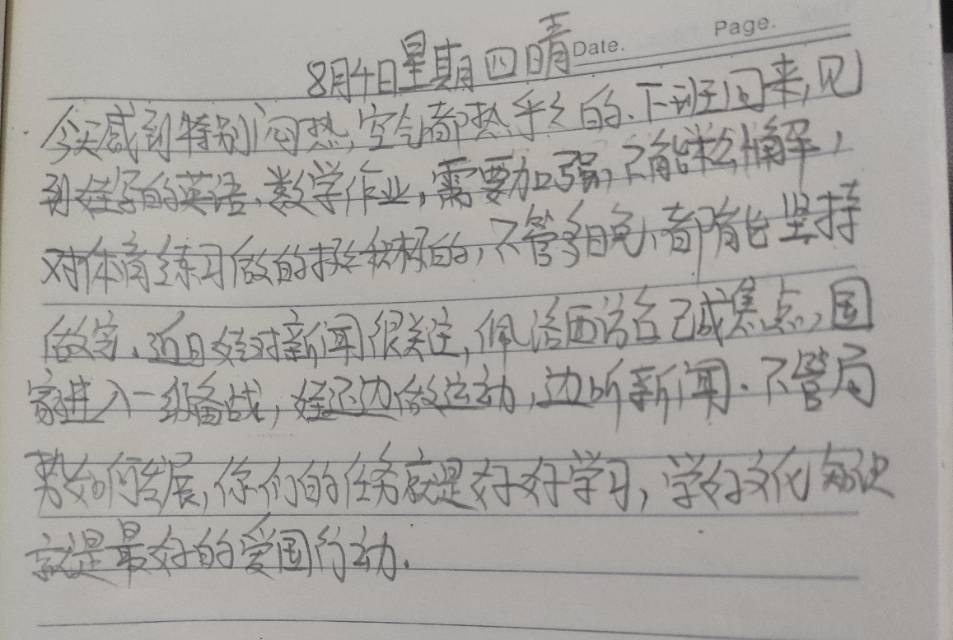 Date. Page.
8月4日星期四晴
今天感到特别闷热,空气都热乎乎的.下班回来,见
到娃子的英语、数学作业,需要加强,不能松懈,
对体育练习做的挺积极的,不管多晚,都能坚持
做完.近日娃对新闻很关注,佩洛西窜台已成焦点,国
家进入一级备战,娃还边做运动,边听新闻.不管局
势如何发展,你们的任务就是好好学习,学好文化知识
就是最好的爱国行动.